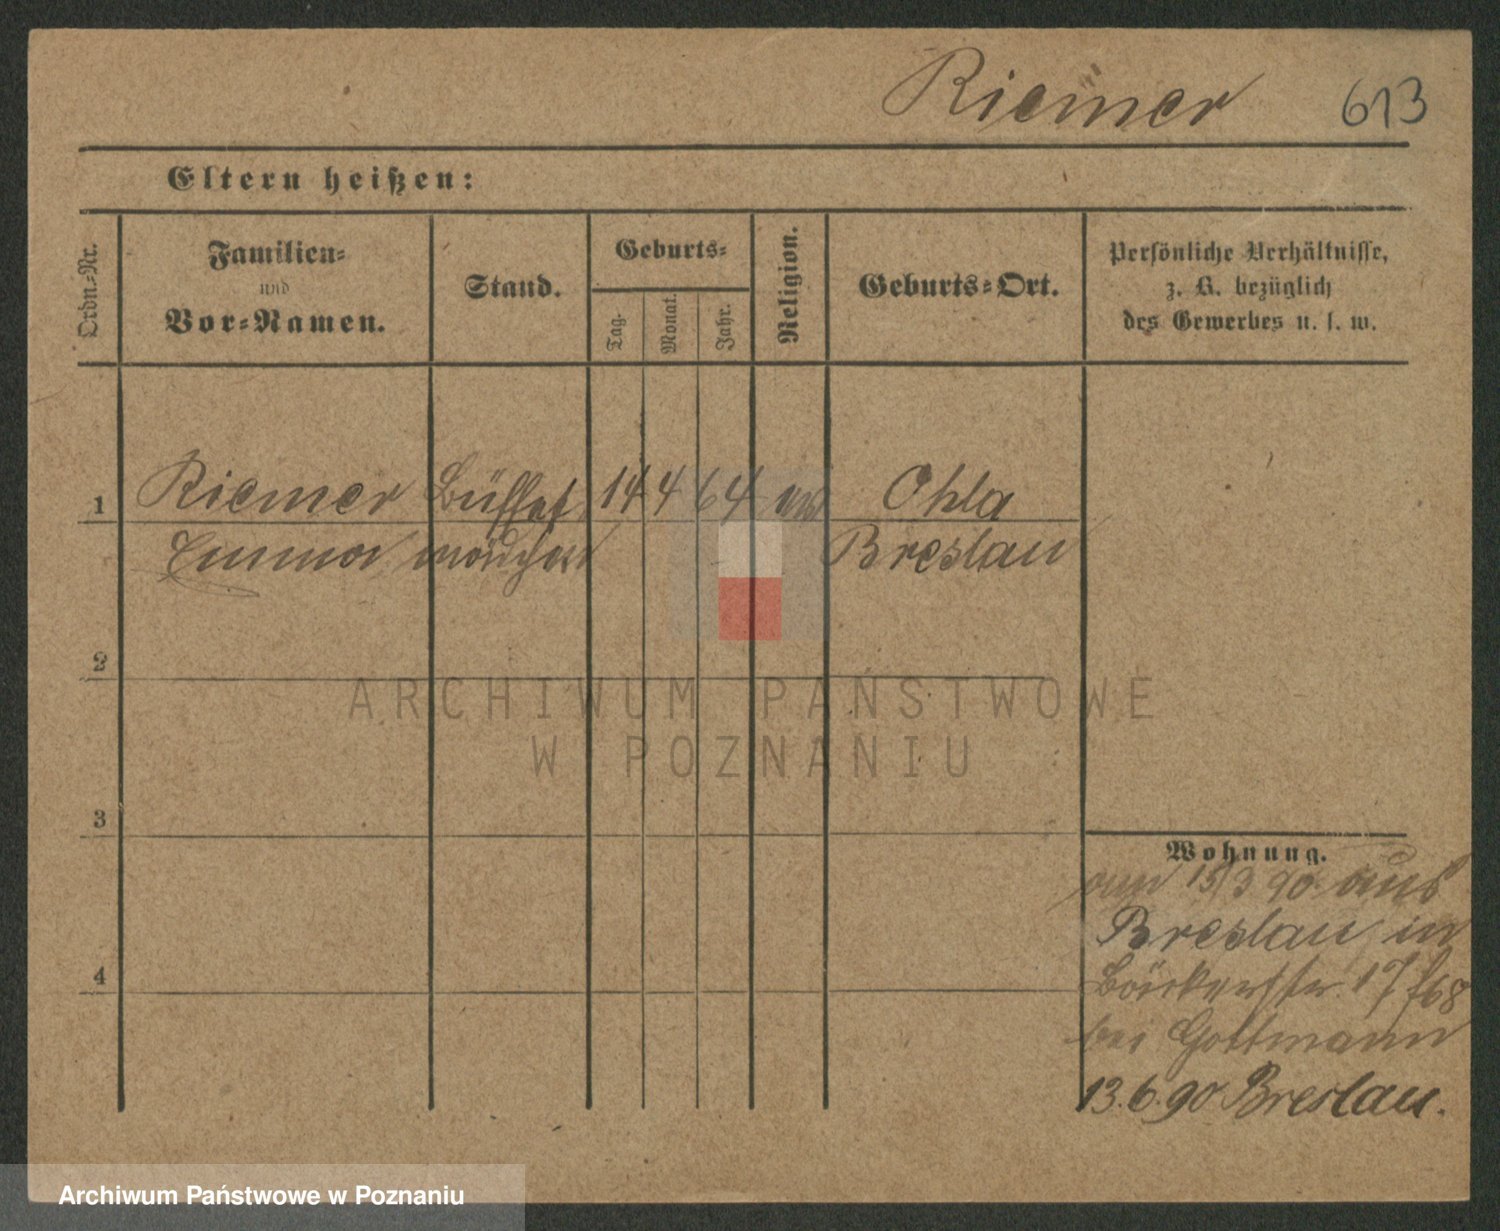 Riemer 613
Eltern heißen:
Ordn.-Nr.
Familien-
und
Vor-Namen.
Stand.
Geburts-
Tag.
Monat.
Jahr.
Religion.
Geburts-Ort.
Persönliche Verhältnisse,
z. B. bezüglich
des Gewerbes u. s. w.
1 Riemer Büffet 14 4 64 ev Ohla
Emma mädchen Breslau
2
ARCHIWUM PAŃSTWOWE
W POZNANIU
3
Wohnung.
am 15/3 90 aus
Breslau in
Bäckerstr. 17
bei Gottmann
13.6.90 Breslau.
4
Archiwum Państwowe w Poznaniu